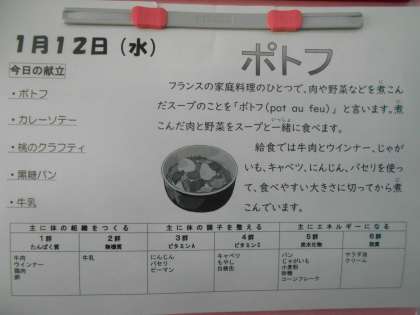 1月12日（水）
ポトフ
今日の献立
・ポトフ
・カレーソテー
・桃のクラフティ
・黒糖パン
・牛乳
フランスの家庭料理のひとつで、肉や野菜などを煮こ
んだスープのことを「ポトフ（pot au feu）」と言います。煮
こんだ肉と野菜をスープと一緒に食べます。
給食では牛肉とウインナー、じゃが
いも、キャベツ、にんじん、パセリを使っ
て、食べやすい大きさに切ってから煮
こんでいます。
主に体の組織をつくる 主に体の調子を整える 主にエネルギーになる
1群 2群 3群 4群 5群 6群
たんぱく質 無機質 ビタミンA ビタミンC 炭水化物 脂質
牛肉 牛乳 にんじん キャベツ パン サラダ油
ウインナー パセリ もやし じゃがいも クリーム
鶏肉 ピーマン 白桃缶 小麦粉
卵 砂糖
コーンフレーク